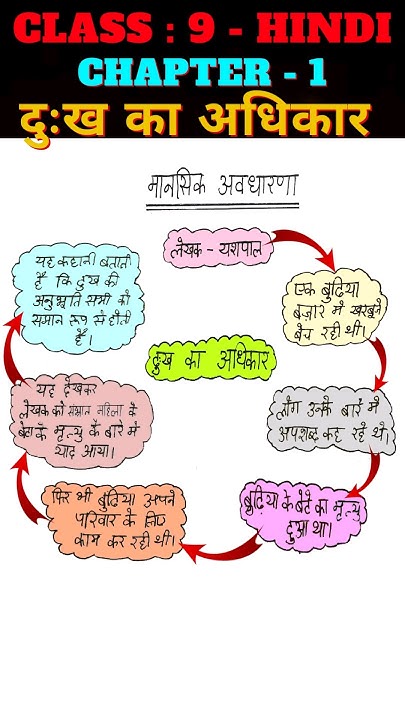 CLASS : 9 - HINDI
CHAPTER - 1
दुःख का अधिकार
मानसिक अवधारणा
लेखक - यशपाल
एक बुढ़िया
बज़ार मे खरबूजे
बेच रही थी।
लोग उनके बारे मे
अपशब्द कह रहे थे।
बुढ़िया के बेटे का मृत्यु
हुआ था।
फिर भी बुढ़िया अपने
परिवार के लिए
काम कर रही थी।
यह देखकर
लेखक को संभ्रात महिला के
बेटा के मृत्यु के बारे मे
याद आया।
यह कहानी बताती
है कि दुख की
अनुभूति सभी को
समान रूप से होती
है।
दुख का अधिकार